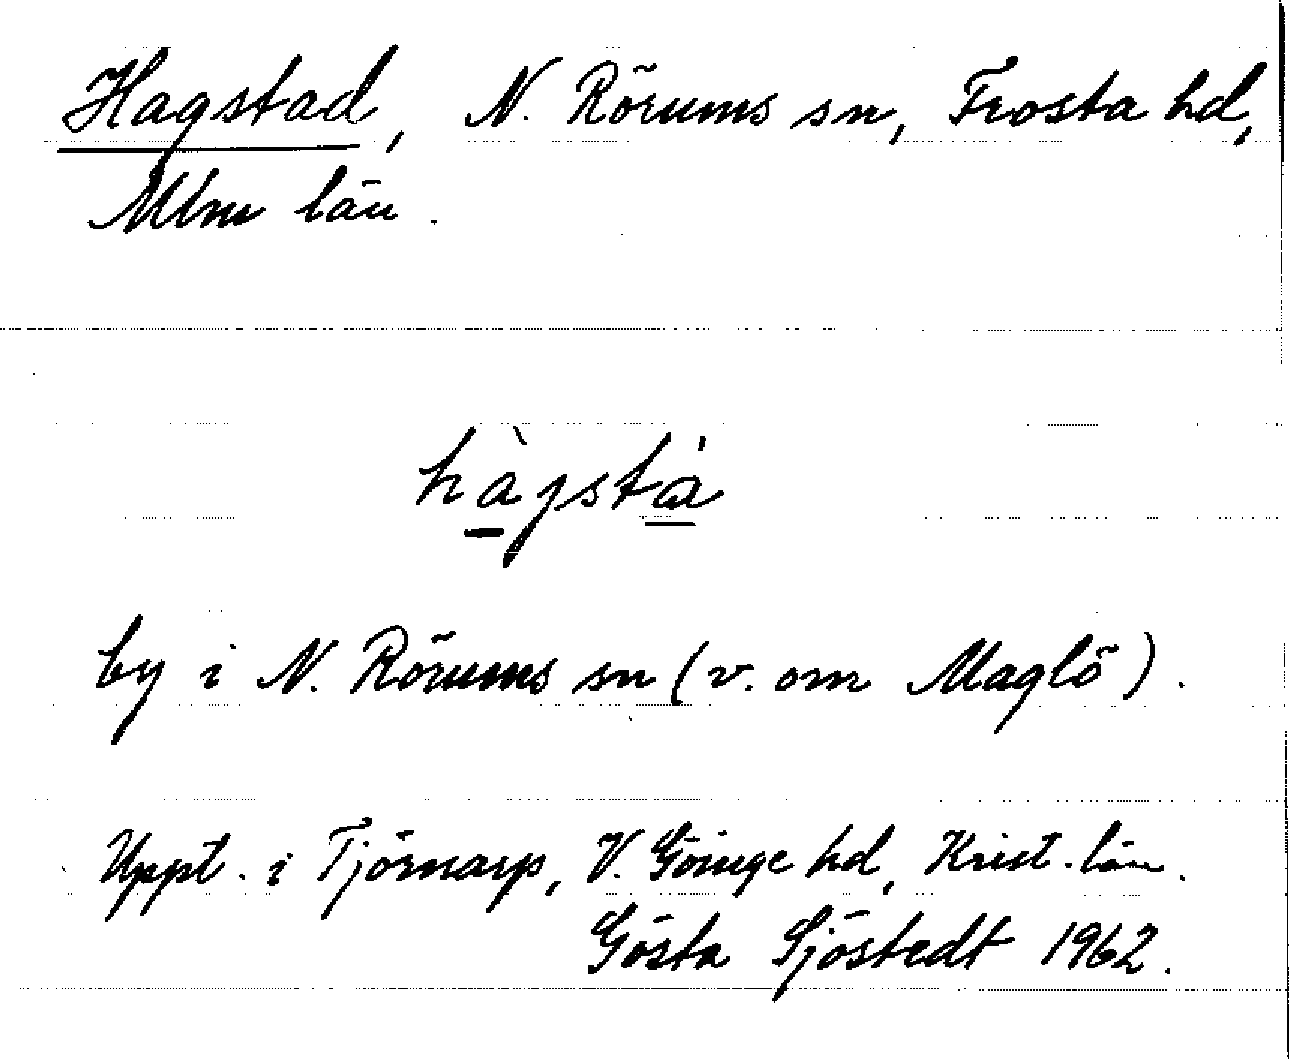 Hagstad, N. Rörums sn, Frosta hd,
Mlm län.
hàgstá
by i N. Rörums sn (v. om Maglö).
Uppt. i Tjörnarp, V. Göinge hd, Krist. län.
Gösta Sjöstedt 1962.